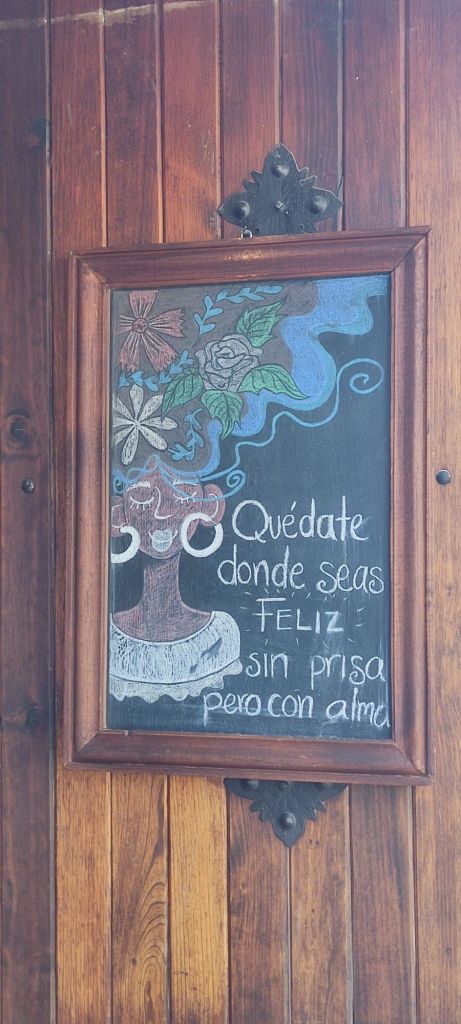 Quédate
donde seas
FELIZ
sin prisa
pero con alma